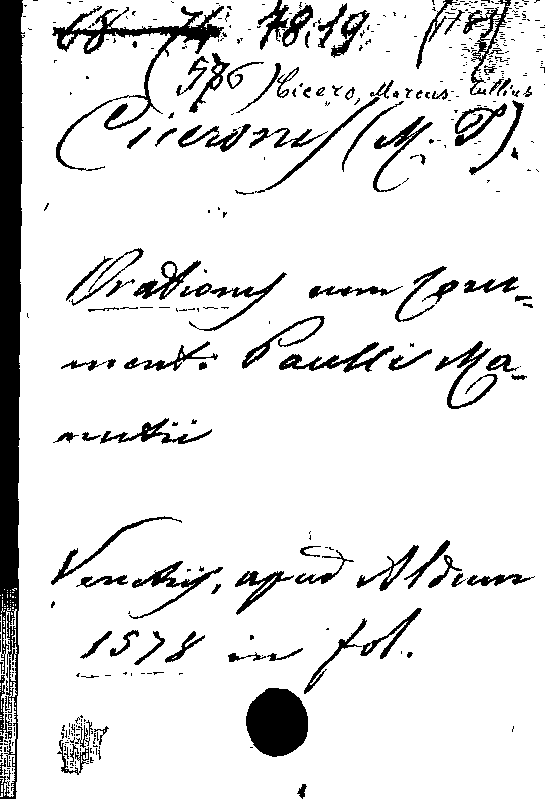 68. 74. 78.19 (183)
(576) Cicero, Marcus Tullius
Ciceronis (M. T).
Orationes cum Com-
ment: Paulli Ma-
nutii
Venetiis, apud Aldum
1578 in fol.